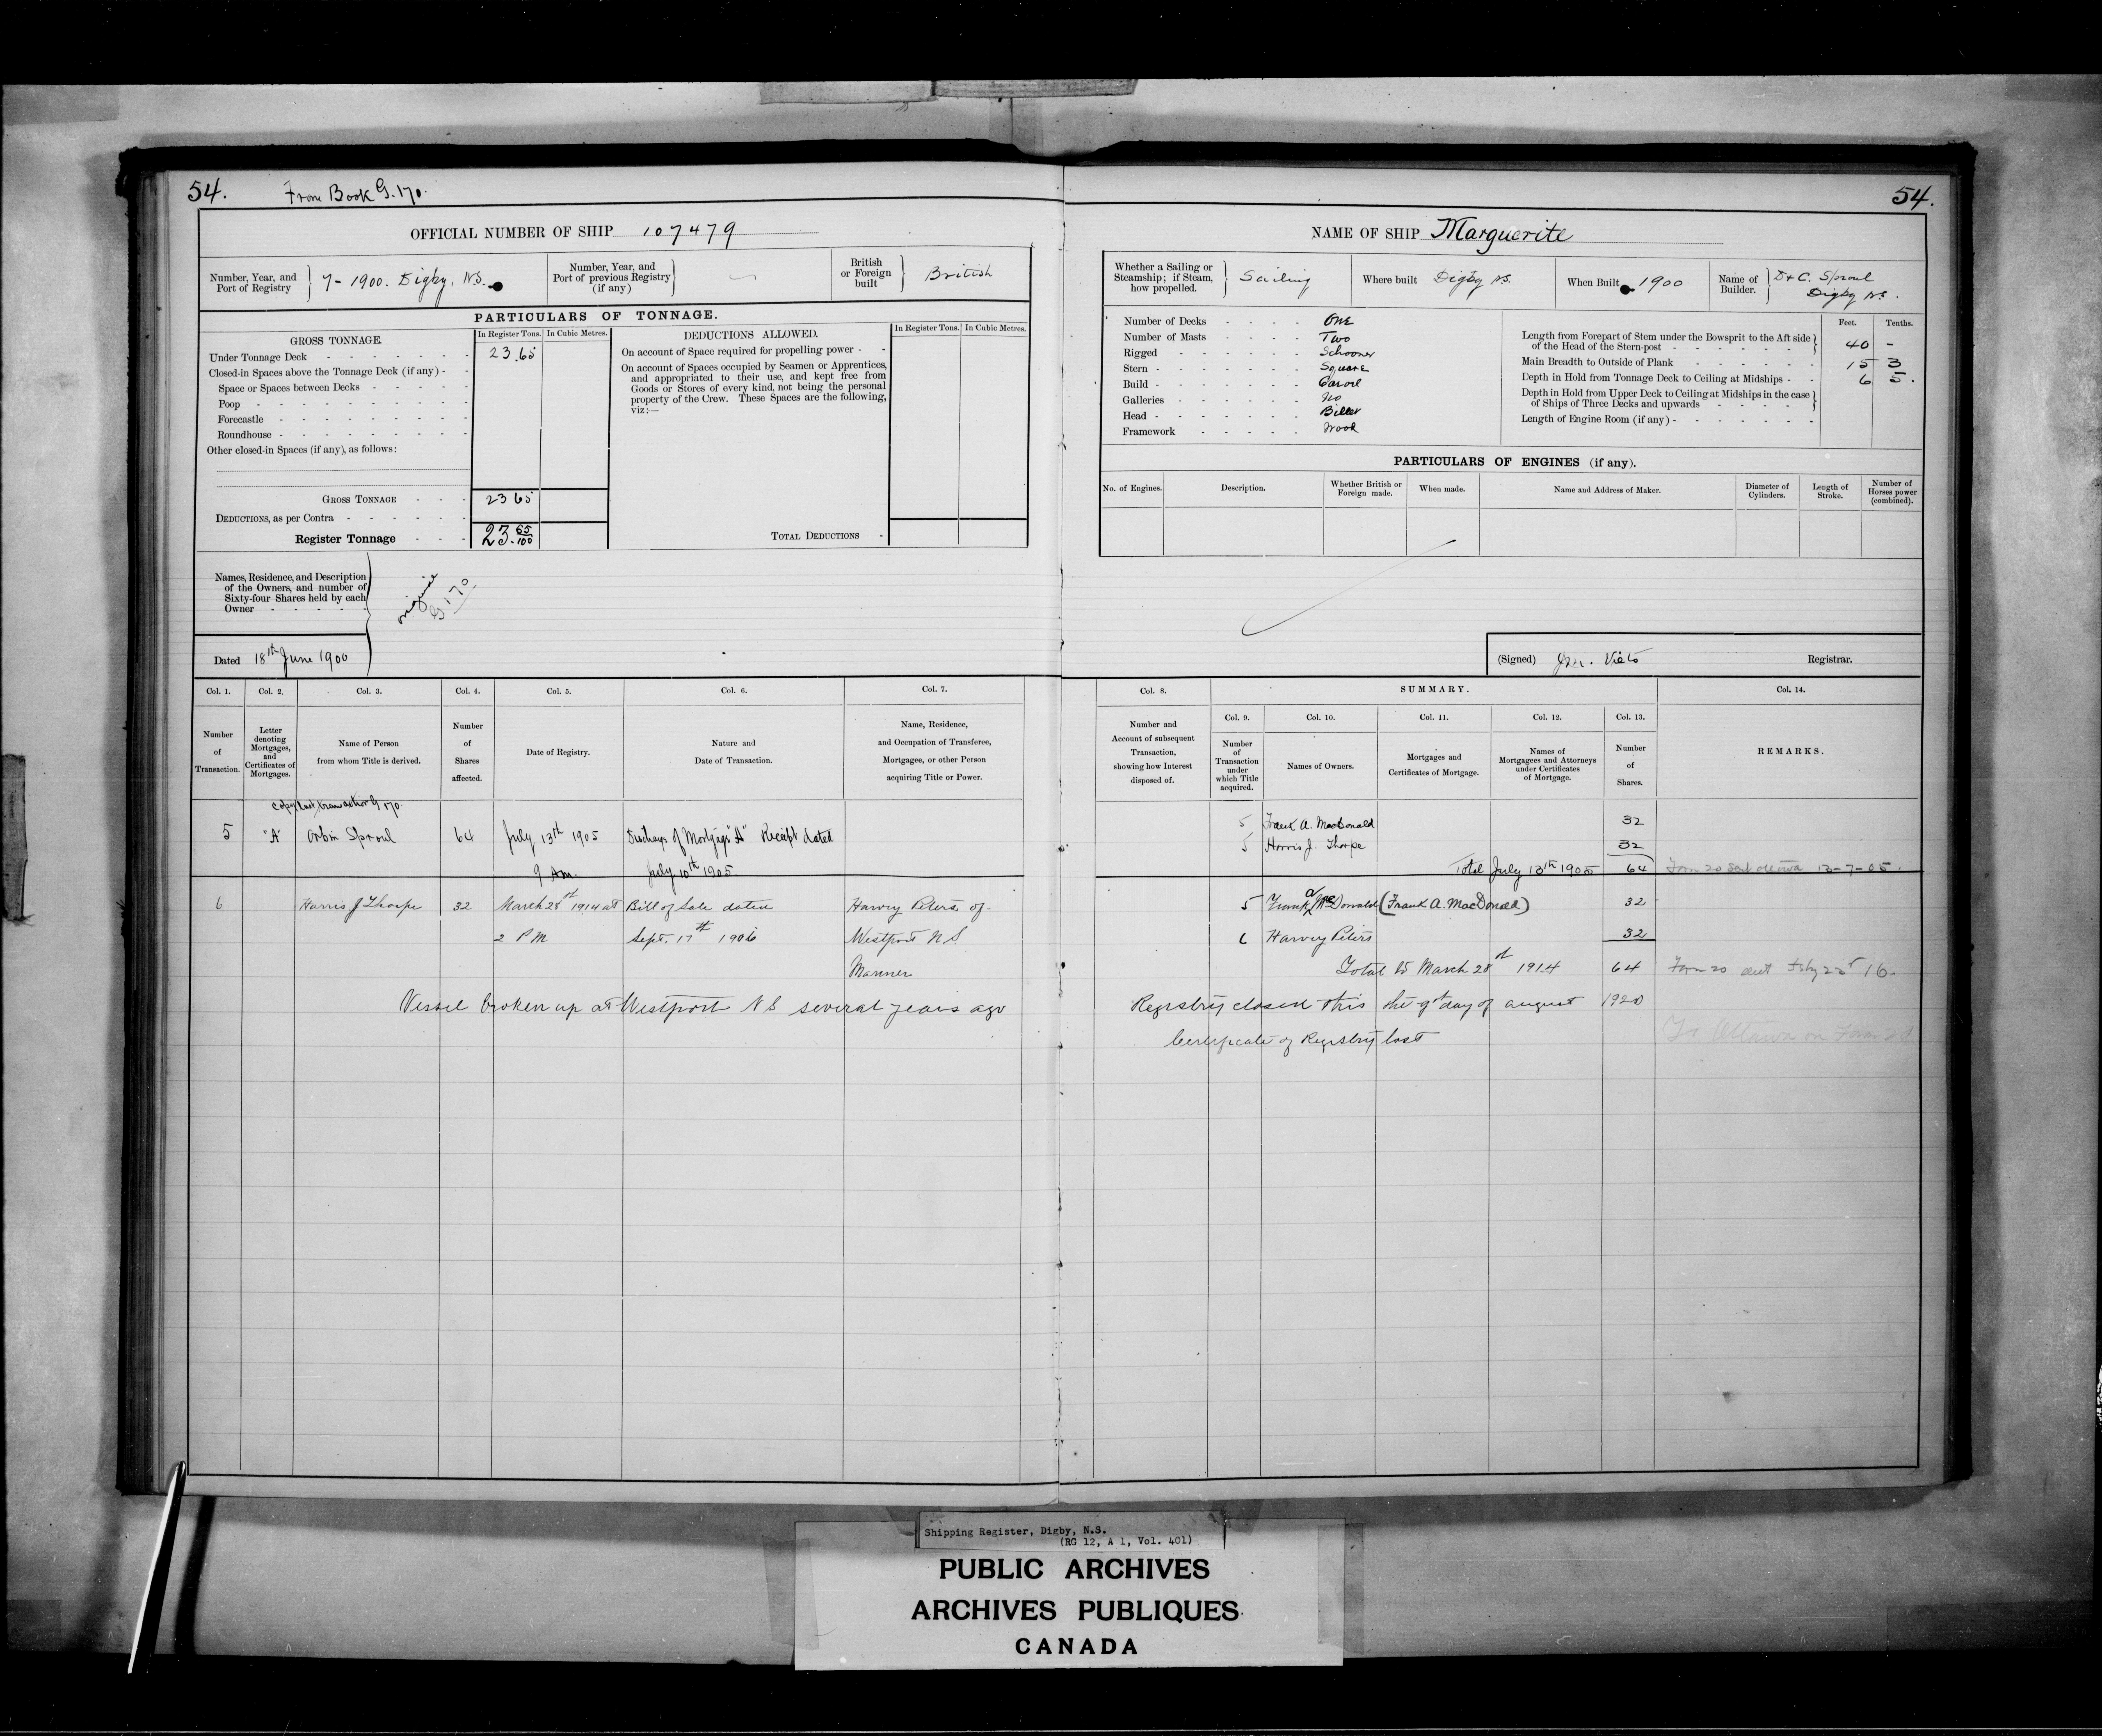 54.
From Book G. 170.
OFFICIAL NUMBER OF SHIP 107479
Number, Year, and Port of Registry
7-1900. Digby, N.S.
Number, Year, and Port of previous Registry (if any)
British or Foreign built
British
PARTICULARS OF TONNAGE.
GROSS TONNAGE.
In Register Tons.
In Cubic Metres.
DEDUCTIONS ALLOWED.
In Register Tons.
In Cubic Metres.
Under Tonnage Deck 23.65
Closed-in Spaces above the Tonnage Deck (if any) -
Space or Spaces between Decks
Poop
Forecastle
Roundhouse
Other closed-in Spaces (if any), as follows:
On account of Space required for propelling power -
On account of Spaces occupied by Seamen or Apprentices,
and appropriated to their use, and kept free from
Goods or Stores of every kind, not being the personal
property of the Crew. These Spaces are the following,
viz:—
GROSS TONNAGE 23 65
DEDUCTIONS, as per Contra
Register Tonnage 23. 65/100
TOTAL DEDUCTIONS
Names, Residence, and Description
of the Owners, and number of
Sixty-four Shares held by each
Owner
original
G 170
Dated 18th June 1900
54.
NAME OF SHIP Marguerite
Whether a Sailing or Steamship; if Steam, how propelled.
Sailing
Where built Digby N.S.
When Built 1900
Name of Builder.
D & C. Sproul
Digby N.S.
Number of Decks One
Number of Masts Two
Rigged Schooner
Stern Square
Build Carvel
Galleries No
Head Billet
Framework Wood
Feet. Tenths.
Length from Forepart of Stem under the Bowsprit to the Aft side
of the Head of the Stern-post 40 -
Main Breadth to Outside of Plank 15 3
Depth in Hold from Tonnage Deck to Ceiling at Midships 6 5.
Depth in Hold from Upper Deck to Ceiling at Midships in the case
of Ships of Three Decks and upwards
Length of Engine Room (if any)
PARTICULARS OF ENGINES (if any).
No. of Engines.
Description.
Whether British or Foreign made.
When made.
Name and Address of Maker.
Diameter of Cylinders.
Length of Stroke.
Number of Horses power (combined).
(Signed) Viets Registrar.
Col. 1. Col. 2. Col. 3. Col. 4. Col. 5. Col. 6. Col. 7.
Number of Transaction.
Letter denoting Mortgages, and Certificates of Mortgages.
Name of Person from whom Title is derived.
Number of Shares affected.
Date of Registry.
Nature and Date of Transaction.
Name, Residence, and Occupation of Transferee, Mortgagee, or other Person acquiring Title or Power.
Col. 8. SUMMARY. Col. 14.
Col. 9. Col. 10. Col. 11. Col. 12. Col. 13.
Number and Account of subsequent Transaction, showing how Interest disposed of.
Number of Transaction under which Title acquired.
Names of Owners.
Mortgages and Certificates of Mortgage.
Names of Mortgagees and Attorneys under Certificates of Mortgage.
Number of Shares.
REMARKS.
Copy last transaction G 170.
5 "A" Orbin Sproul 64 July 13th 1905 Discharge of Mortgage "A" Receipt dated
9 Am. July 10th 1905
5 Frank A. MacDonald 32
5 Harris J. Thorpe 32
Total July 13th 1905 64 Form 20 sent Ottawa 13-7-05.
6 Harris J Thorpe 32 March 28th 1914 at Bill of Sale dated Harvey Peters of
2 PM Sept. 17th 1906 Westport N S
Mariner
5 Frank A McDonald (Frank A. MacDonald) 32
6 Harvey Peters 32
Total to March 28th 1914 64 Form 20 sent 16.
Vessel broken up at Westport N S several years ago
Registry closed this the 9th day of August 1920
Certificate of Registry lost
To Ottawa on Form 20
Shipping Register, Digby, N.S.
(RG 12, A 1, Vol. 401)
PUBLIC ARCHIVES
ARCHIVES PUBLIQUES
CANADA